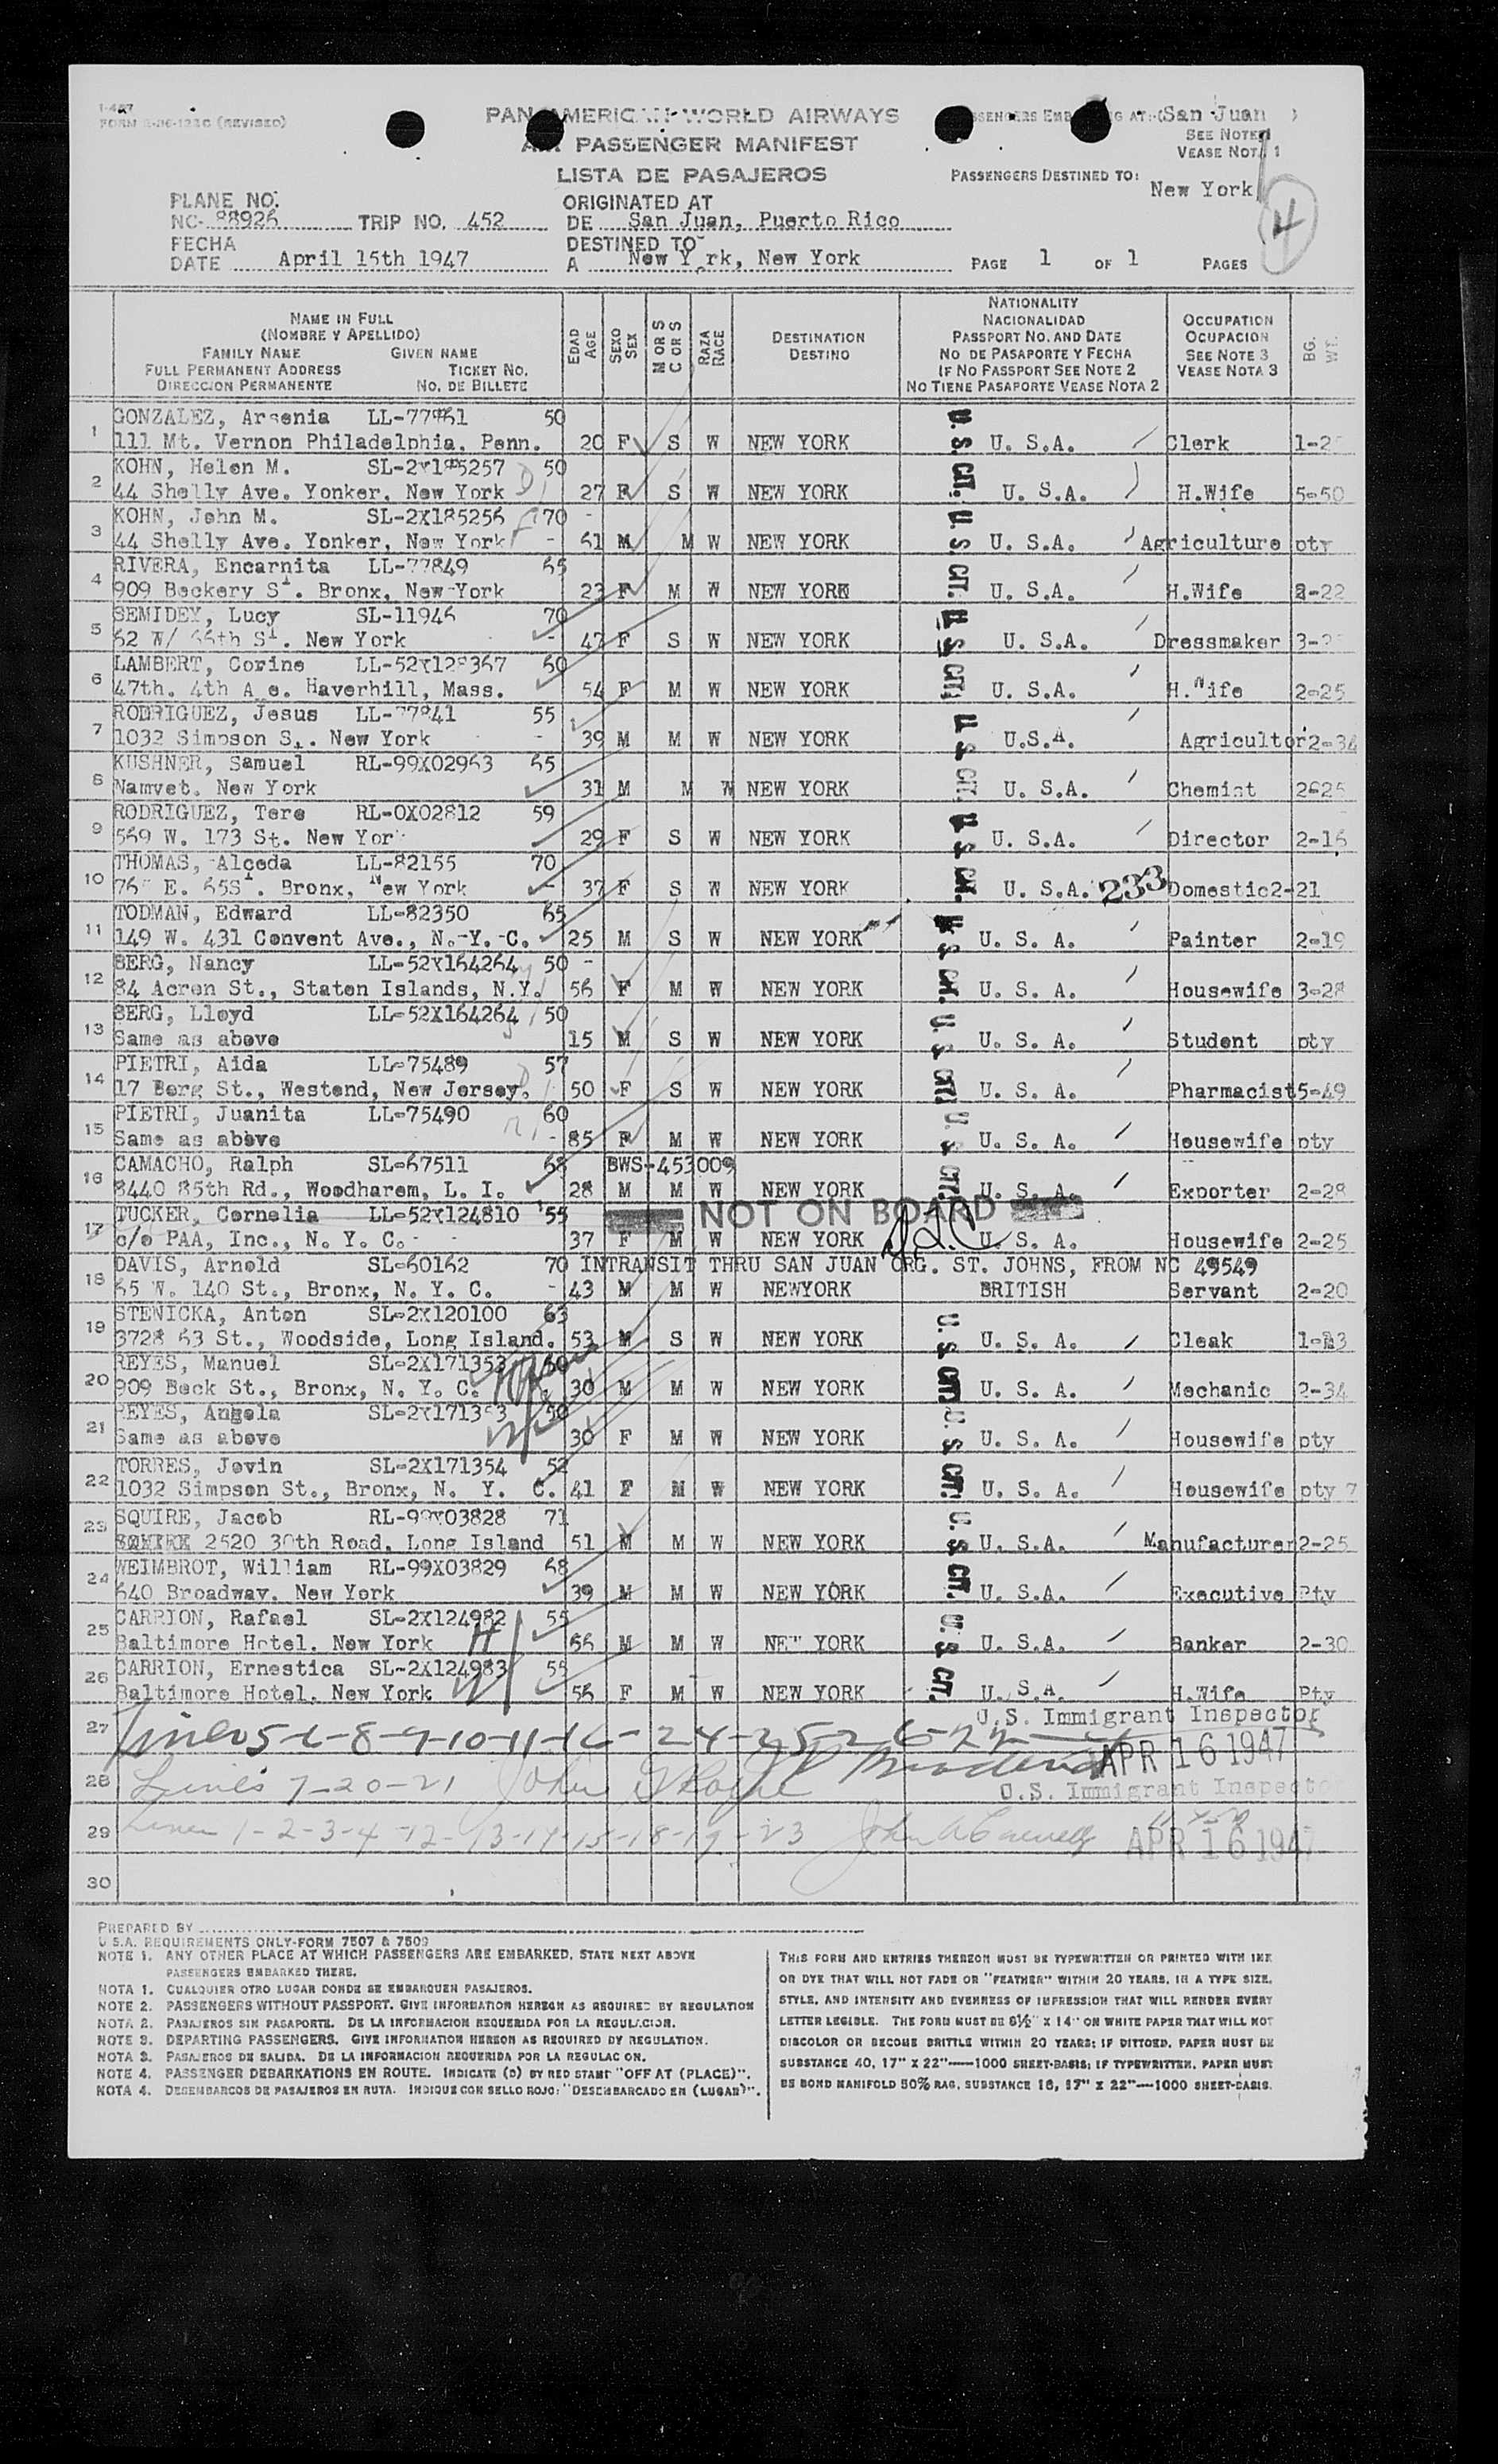 I-467
FORM (REVISED)
PAN AMERICAN WORLD AIRWAYS
PASSENGER MANIFEST
LISTA DE PASAJEROS
AT: (San Juan )
SEE NOTE 1
VEASE NOTA 1
PASSENGERS DESTINED TO:
New York
4
PLANE NO.
NC- 88926 TRIP NO. 452
ORIGINATED AT
DE San Juan, Puerto Rico
FECHA
DATE April 15th 1947
DESTINED TO
A New Y rk, New York
PAGE 1 OF 1 PAGES
NAME IN FULL
(NOMBRE Y APELLIDO)
FAMILY NAME GIVEN NAME
FULL PERMANENT ADDRESS TICKET NO.
DIRECCION PERMANENTE NO. DE BILLETE
EDAD AGE
SEXO SEX
M OR S C OR S
RAZA RACE
DESTINATION
DESTINO
NATIONALITY
NACIONALIDAD
PASSPORT NO. AND DATE
NO DE PASAPORTE Y FECHA
IF NO PASSPORT SEE NOTE 2
NO TIENE PASAPORTE VEASE NOTA 2
OCCUPATION
OCUPACION
SEE NOTE 3
VEASE NOTA 3
BG. WE.
GONZALEZ, Arsenia 50
1 111 Mt. Vernon Philadelphia, Penn. 20 F S W NEW YORK U. S.A. Clerk
KOHN, Helen M. 50
2 44 Shelly Ave. Yonker, New York 27 F S W NEW YORK U. S.A. H.Wife 5-50
KOHN, John M. SL-2X185256 70
3 44 Shelly Ave. Yonker, New York 61 M M W NEW YORK U. S.A. Agriculture pty
RIVERA, Encarnita LL-77849 65
4 909 Beckery St. Bronx, New York 23 F M W NEW YORK U. S.A. H.Wife 2-22
SEMIDEY, Lucy SL-11946 70
5 62 W/ 66th St. New York 47 F S W NEW YORK U. S.A. Dressmaker
LAMBERT, Corine 60
6 47th. 4th A e. Haverhill, Mass. 54 F M W NEW YORK U. S.A. H.Wife 2-25
RODRIGUEZ, Jesus LL-77841 55
7 1032 Simpson S . New York 39 M M W NEW YORK U.S.A. Agricultor 2-34
KUSHNER, Samuel RL-99X02963 65
8 Namvet. New York 31 M M W NEW YORK U. S.A. Chemist 2-25
RODRIGUEZ, Tere RL-0X02812 59
9 569 W. 173 St. New York 29 F S W NEW YORK U. S.A. Director 2-16
THOMAS, Alceda LL-82155 70
10 E. 65St. Bronx, New York 37 F S W NEW YORK U. S.A. 233 Domestic 2-21
TODMAN, Edward LL-82350 65
11 149 W. 431 Convent Ave., N. Y. C. 25 M S W NEW YORK U. S. A. Painter 2-19
BERG, Nancy LL-52X164264 50
12 84 Acren St., Staten Islands, N.Y. 56 F M W NEW YORK U. S. A. Housewife 3-28
BERG, Lloyd LL-52X164264 50
13 Same as above 15 M S W NEW YORK U. S. A. Student pty
PIETRI, Aida LL-75489 57
14 17 Berg St., Westend, New Jersey. 50 F S W NEW YORK U. S. A. Pharmacist 5-49
PIETRI, Juanita LL-75490 60
15 Same as above 85 F M W NEW YORK U. S. A. Housewife pty
CAMACHO, Ralph SL-67511 68 BWS-453009
16 8440 85th Rd., Woodharem, L. I. 28 M M W NEW YORK U. S. A. Exporter 2-28
TUCKER, Cornelia LL-52X124810 55 NOT ON BOARD
17 c/o PAA, Inc., N. Y. C. 37 F M W NEW YORK U. S. A. Housewife 2-25
DAVIS, Arnold SL-60162 70 INTRANSIT THRU SAN JUAN ORG. ST. JOHNS, FROM NC 49549
18 65 W. 140 St., Bronx, N. Y. C. 43 M M W NEWYORK BRITISH Servant 2-20
STENICKA, Anton SL-2X120100 63
19 3728 63 St., Woodside, Long Island. 53 M S W NEW YORK U. S. A. Cleak
REYES, Manuel SL-2X171353 60
20 909 Beck St., Bronx, N. Y. C. 30 M M W NEW YORK U. S. A. Mechanic 2-34
REYES, Angela SL-2X171353 50
21 Same as above 30 F M W NEW YORK U. S. A. Housewife pty
TORRES, Jovin SL-2X171354 52
22 1032 Simpson St., Bronx, N. Y. C. 41 F M W NEW YORK U. S. A. Housewife pty
SQUIRE, Jacob RL-99X03828 71
23 2520 30th Road, Long Island 51 M M W NEW YORK U. S.A. Manufacturer 2-25
WEIMBROT, William RL-99X03829 68
24 640 Broadway, New York 39 M M W NEW YORK U. S.A. Executive Pty
CARRION, Rafael SL-2X124982 55
25 Baltimore Hotel, New York 56 M M W NEW YORK U. S.A. Banker 2-30
CARRION, Ernestica SL-2X124983 55
26 Baltimore Hotel, New York 56 F M W NEW YORK U. S.A. H.Wife Pty
U.S. CIT.
U.S. Immigrant Inspector
27 Lines 5-6-8-9-10-11-16-24-25-26-22
APR 16 1947
28 Lines 7-20-21 John
U.S. Immigrant Inspector
29 Lines 1-2-3-4-12-13-14-15-18-19-23 John
APR 16 1947
30
PREPARED BY
U S.A. REQUIREMENTS ONLY-FORM 7507 & 7509
NOTE 1. ANY OTHER PLACE AT WHICH PASSENGERS ARE EMBARKED, STATE NEXT ABOVE
PASSENGERS EMBARKED THERE.
NOTA 1. CUALQUIER OTRO LUGAR DONDE SE EMBARQUEN PASAJEROS.
NOTE 2. PASSENGERS WITHOUT PASSPORT. GIVE INFORMATION HEREON AS REQUIRED BY REGULATION
NOTA 2. PASAJEROS SIN PASAPORTE. DE LA INFORMACION REQUERIDA POR LA REGULACION.
NOTE 3. DEPARTING PASSENGERS. GIVE INFORMATION HEREON AS REQUIRED BY REGULATION.
NOTA 3. PASAJEROS DE SALIDA. DE LA INFORMACION REQUERIDA POR LA REGULAC ON.
NOTE 4. PASSENGER DEBARKATIONS EN ROUTE. INDICATE (D) BY RED STAMP "OFF AT (PLACE)".
NOTA 4. DESEMBARCOS DE PASAJEROS EN RUTA. INDIQUE CON SELLO ROJO: "DESEMBARCADO EN (LUGAR)".
THIS FORM AND ENTRIES THEREON MUST BE TYPEWRITTEN OR PRINTED WITH INK
OR DYE THAT WILL NOT FADE OR "FEATHER" WITHIN 20 YEARS, IN A TYPE SIZE,
STYLE, AND INTENSITY AND EVENNESS OF IMPRESSION THAT WILL RENDER EVERY
LETTER LEGIBLE. THE FORM MUST BE 8½" X 14" ON WHITE PAPER THAT WILL NOT
DISCOLOR OR BECOME BRITTLE WITHIN 20 YEARS; IF DITTOED, PAPER MUST BE
SUBSTANCE 40, 17" X 22"—1000 SHEET-BASIS; IF TYPEWRITTEN, PAPER MUST
BE BOND MANIFOLD 50% RAG, SUBSTANCE 16, 17" X 22"—1000 SHEET-BASIS.